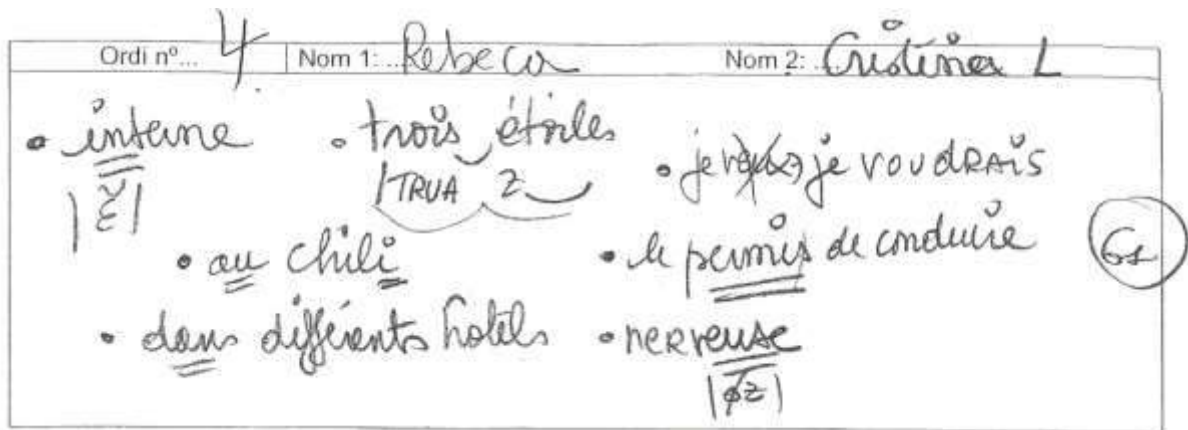 Ordi nº... 4. Nom 1: ... Rebeca Nom 2: Cristina L
• interne • trois étoiles • je veux je voudrais
|ɛ̃| |TRUA Z
• au chili • le permis de conduire
• dans différents hotels • nerveuse
|øz|